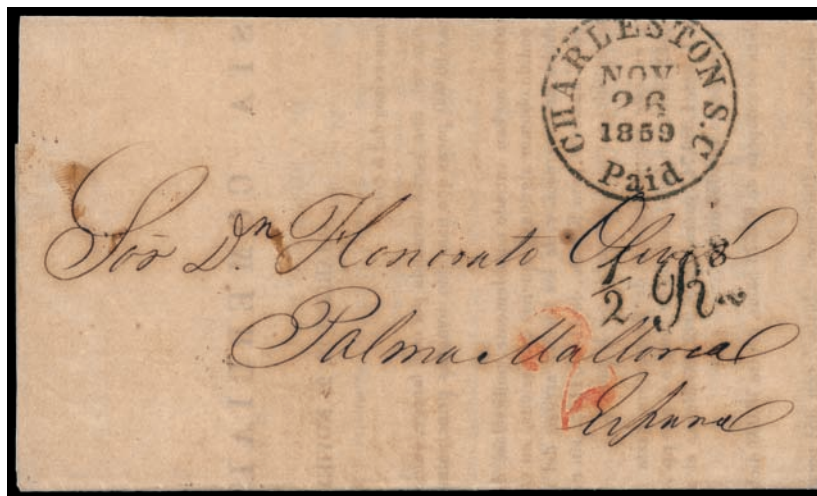 CHARLESTON S.C
NOV
26
1859
Paid
Sor Dn Honorato
1/2 Rs
Palma Mallorca
2
España